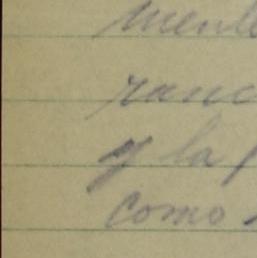 mente
ranc
y la
como